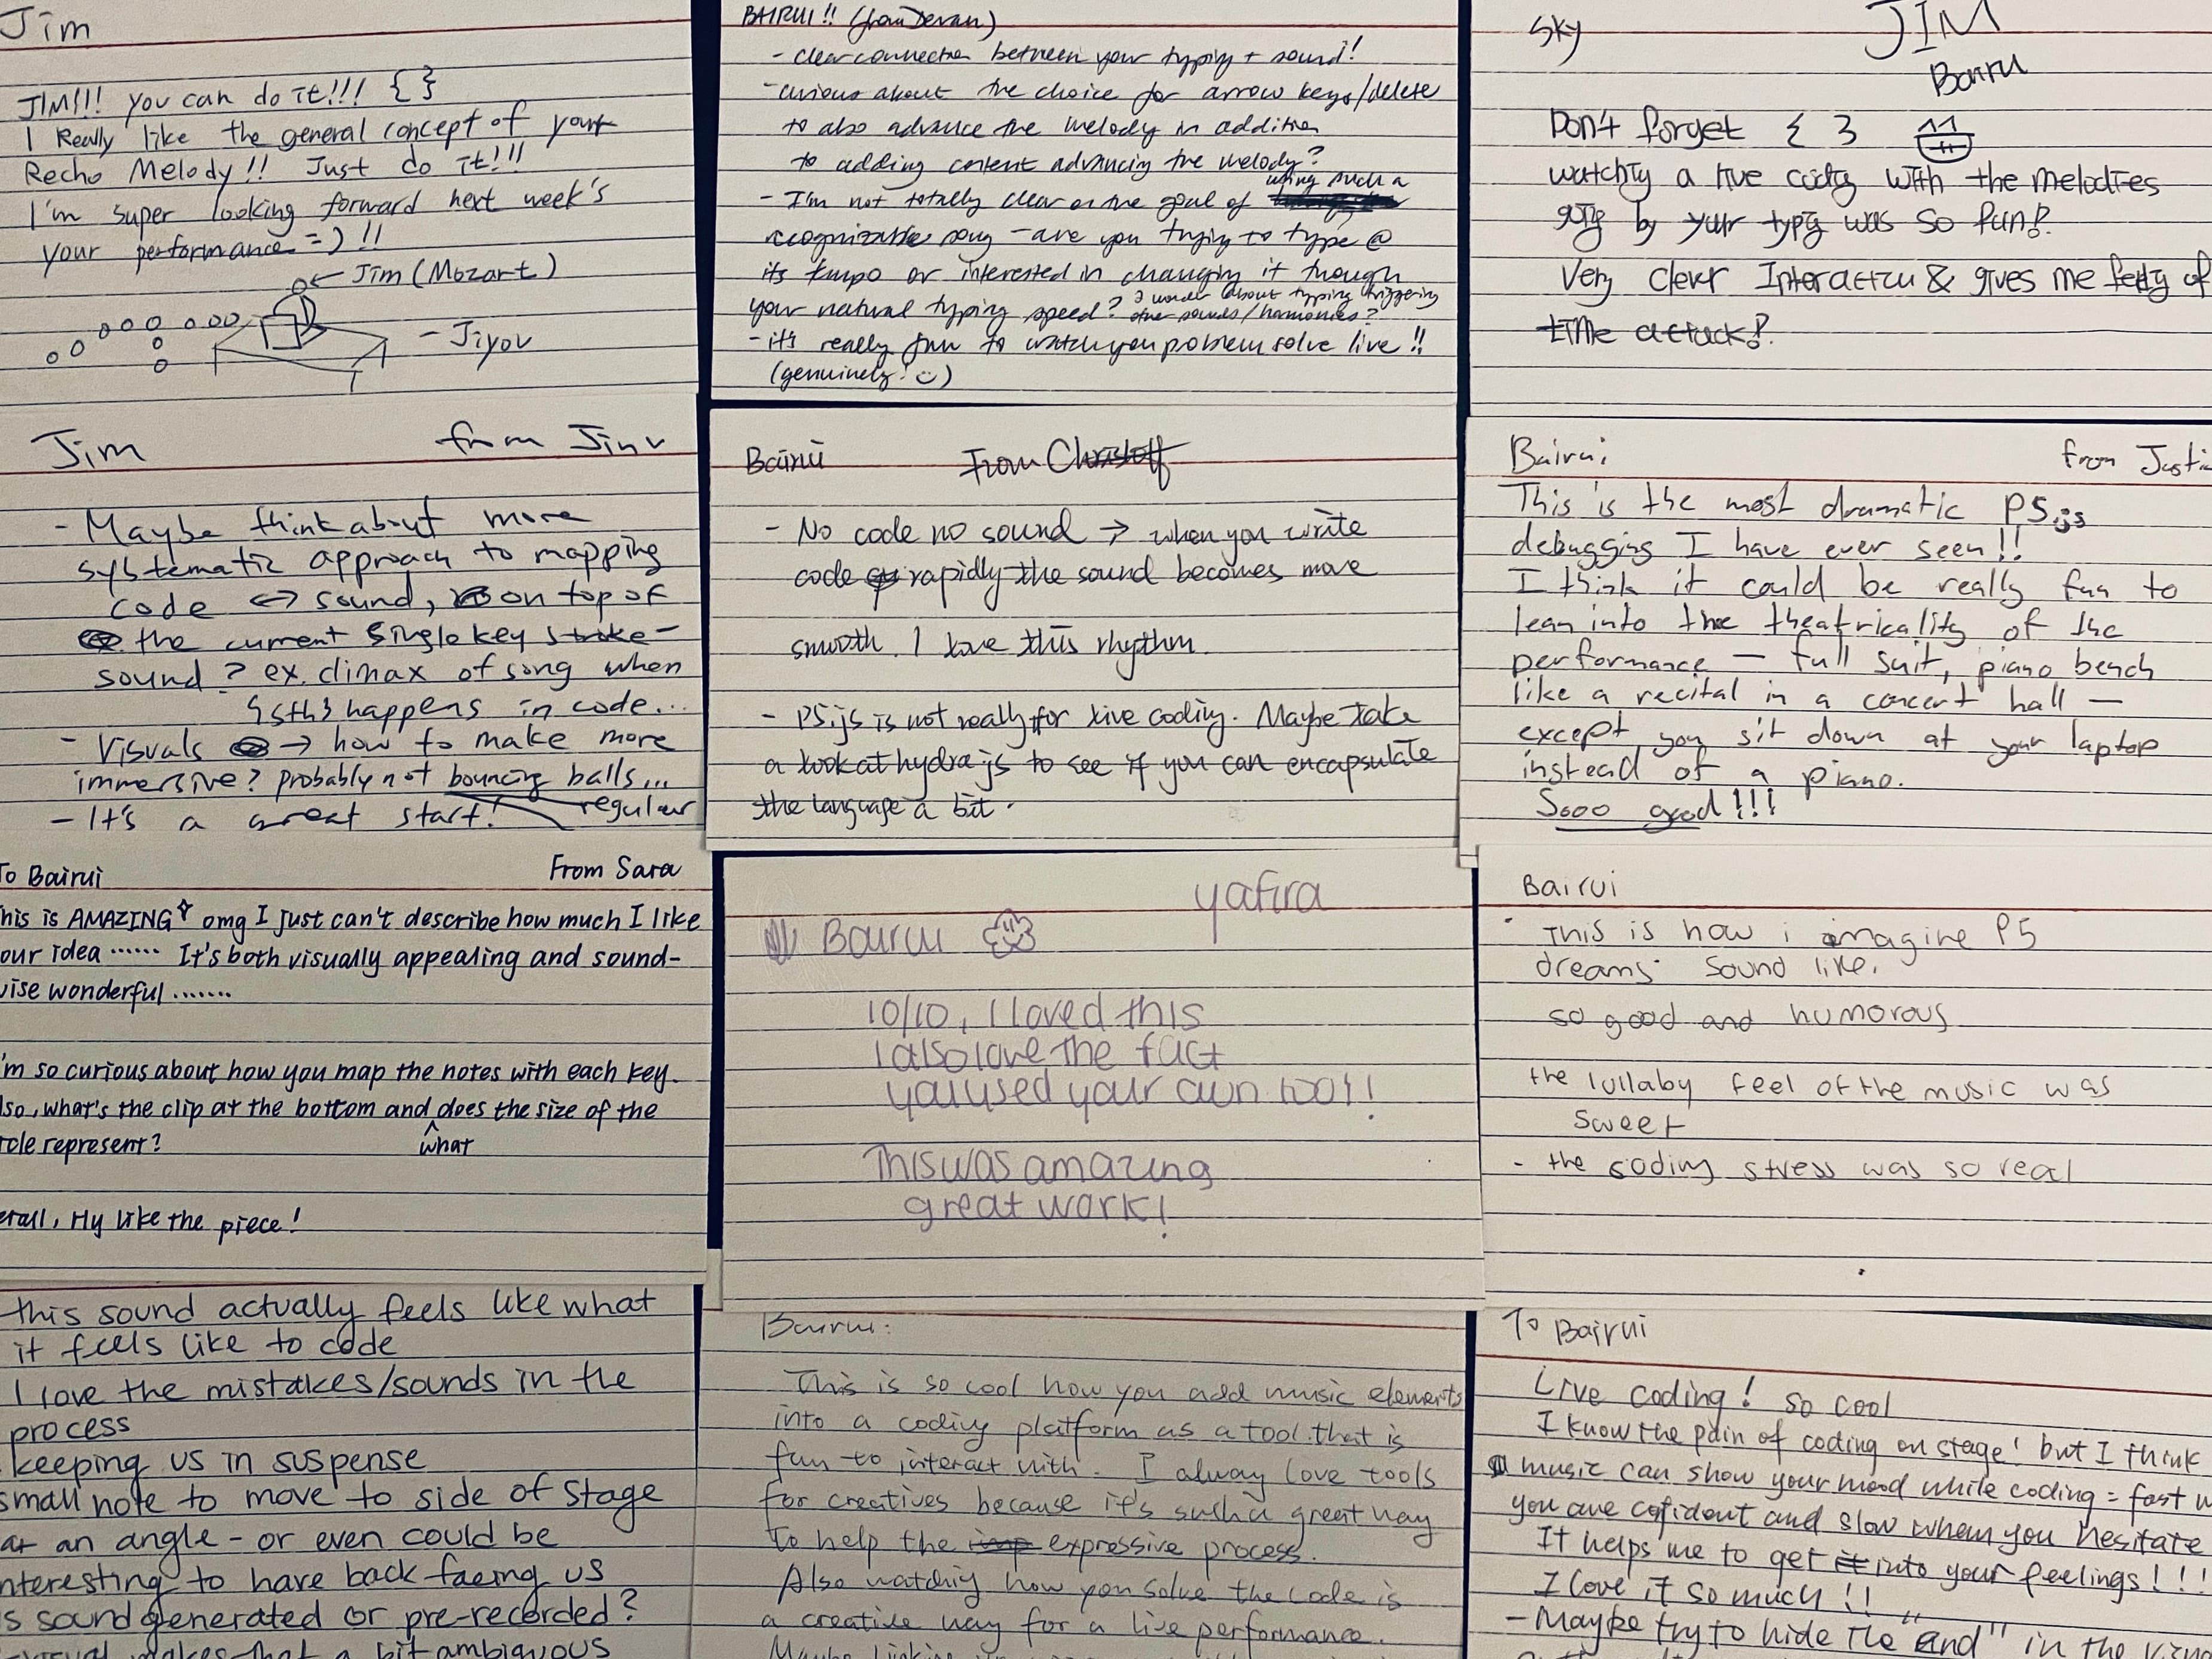 Jim
JIM!!! you can do it!!! { }
I Really like the general concept of your
Recho Melody!! Just do it!!!
I'm super looking forward next week's
your performance =) !!
Jim (Mozart)
- Jiyou
BAIRUI!! (from Devan)
- clear connection between your typing + sound!
- curious about the choice for arrow keys/delete
to also advance the melody in addition
to adding content advancing the melody?
- I'm not totally clear on the goal of using such a
recognizable song - are you trying to type @
its tempo or interested in changing it though
your natural typing speed? I wonder about typing triggering
other sounds/harmonies?
- it's really fun to watch you problem solve live !!
(genuinely! :))
Sky
JIM
Bairu
Don't forget { }
watchig a live codig with the melodies
goig by your typig was so fun!
Very clever Interactin & gives me feelig of
time attack!
Jim from Jinu
- Maybe think about more
systematic approach to mapping
code <-> sound, on top of
the current single key strike -
sound? ex. climax of song when
{sth} happens in code...
- Visuals → how to make more
immersive? probably not bouncing balls...
regular
- It's a great start!
Bairui From Christoff
- No code no sound → when you write
code rapidly the sound becomes more
smooth. I love this rhythm.
- P5.js is not really for live coding. Maybe take
a look at hydra js to see if you can encapsulate
the language a bit.
Bairui from Justi
This is the most dramatic P5.js
debugging I have ever seen!!
I think it could be really fun to
lean into the theatricality of the
performance - full suit, piano bench
like a recital in a concert hall -
except you sit down at your laptop
instead of a piano.
Sooo good!!!
To Bairui From Sara
his is AMAZING omg I just can't describe how much I like
our idea ...... It's both visually appealing and sound-
wise wonderful .......
'm so curious about how you map the notes with each key.
lso, what's the clip at the bottom and what does the size of the
rcle represent?
erall, Hly like the piece!
yafira
Bairui
10/10, I loved this
I also love the fact
you used your own tool!
This was amazing
great work!
Bairui
· This is how i imagine P5
dreams sound like.
so good and humorous
the lullaby feel of the music was
sweet
- the coding stress was so real
this sound actually feels like what
it feels like to code
I love the mistakes/sounds in the
process
keeping us in suspense
small note to move to side of stage
at an angle - or even could be
nteresting to have back facing us
is sound generated or pre-recorded?
makes that a bit ambiguous
Bairui:
This is so cool how you add music elements
into a coding platform as a tool that is
fun to interact with. I alway love tools
for creatives because it's such a great way
to help the expressive process.
Also watchig how you solve the code is
a creative way for a live performance.
Maybe
To Bairui
Live coding! so cool
I know the pain of coding on stage! but I think
music can show your mood while coding = fast w
you are cofident and slow when you hesitate
It helps me to get into your feelings!!!
I love it so much!!
- Maybe try to hide the "end" in the